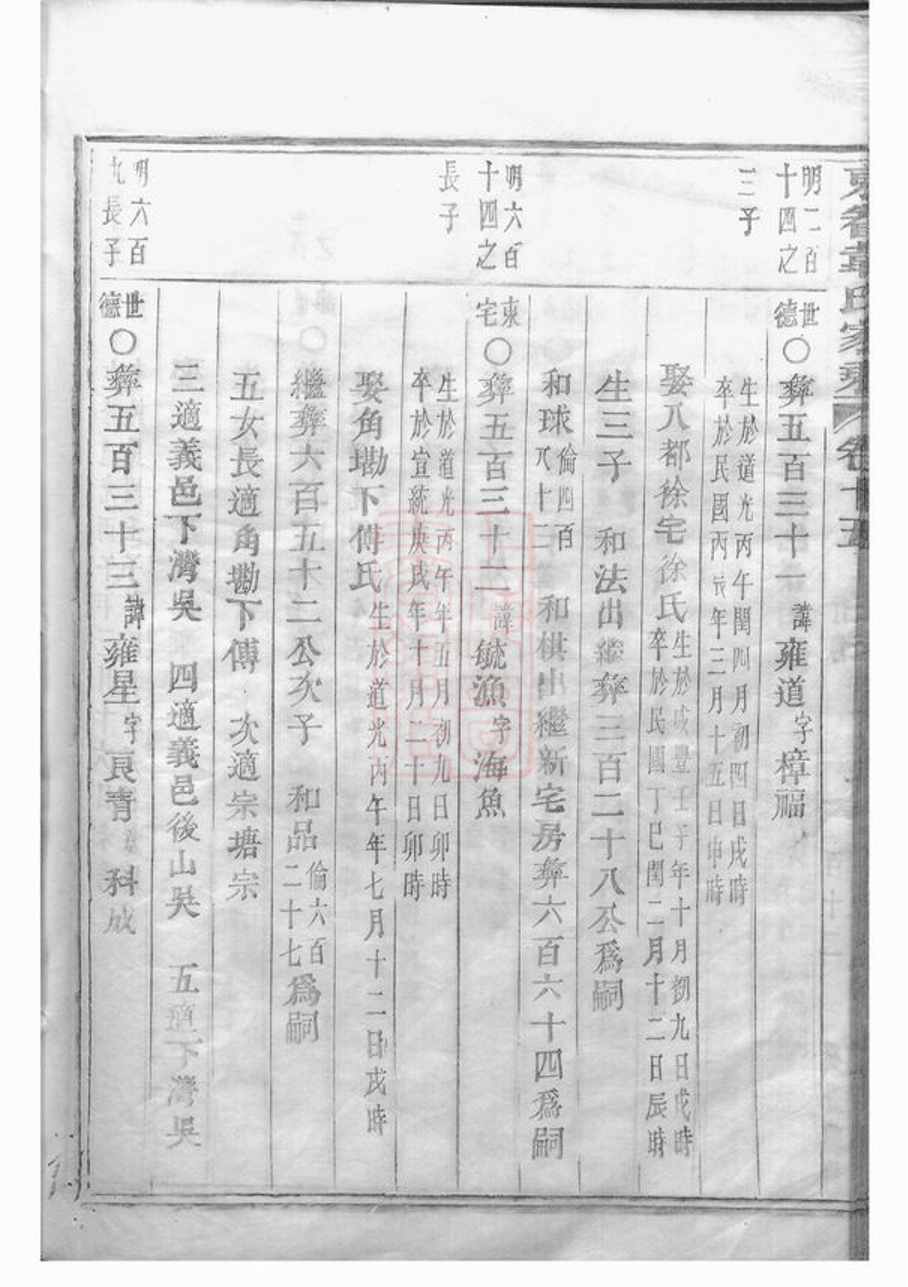 章氏家乘 卷十五
明二百十四之三子
世德○彝五百三十一諱雍道字樟福
生於道光丙午閏四月初四日戌時
卒於民國丙辰年三月十五日申時
娶八都徐宅徐氏生於咸豐壬子年十月初九日戌時卒於民國丁巳閏二月十二日辰時
生三子 和法出繼彝三百二十八公爲嗣
和球倫四百 和棋出繼新宅房彝六百六十四爲嗣
明六百十四之長子
東宅○彝五百三十二諱毓漁字海魚
生於道光丙午年五月初九日卯時
卒於宣統庚戌年十月二十日卯時
娶角塸下傅氏生於道光丙午年七月十二日戌時
繼彝六百五十二公次子 和品倫六百二十七爲嗣
五女長適角塸下傅 次適宗塘宗
三適義邑下灣吳 四適義邑後山吳 五適下灣吳
明六百九長子
世德○彝五百三十三諱雍星字良青 科成